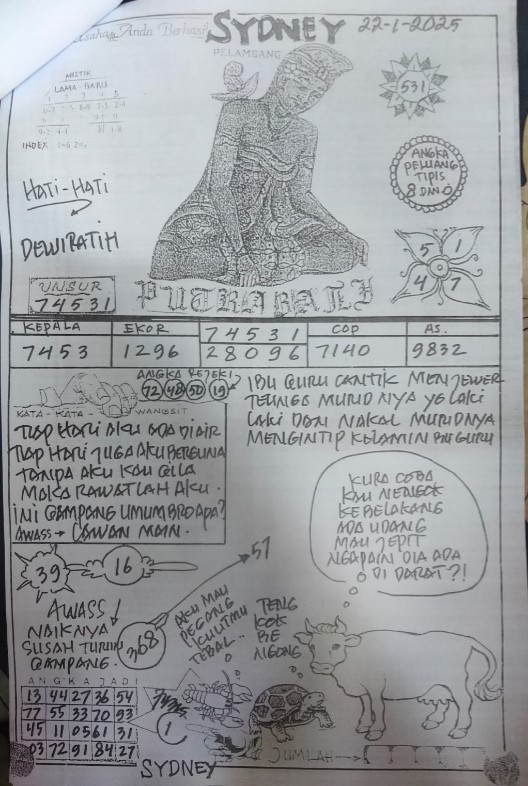 Usaha Anda Berhasil
SYDNEY
22-1-2025
PELAMBANG
MISTIK
LAMA - BARU
INDEX
531
ANGKA
PELUANG
TIPIS
8 DAN 0
HATI-HATI
DEWI RATIH
5 1
4 7
UNSUR
74531
PUTRA BALI
KEPALA
EKOR
74531
COP
AS.
7453
1296
28096
7140
9832
ANGKA REJEKI
72 48 50 19
KATA - KATA - WANGSIT
TIAP HARI AKU ADA DI AIR
TIAP HARI JUGA AKU BERGUNA
TANPA AKU KAU GILA
MAKA RAWATLAH AKU.
INI GAMPANG UMUM BRO APA?
AWASS → LAWAN MAIN.
IBU GURU CANTIK MENJEWER
TELINGA MURIDNYA YG LAKI
LAKI DAN NAKAL MURIDNYA
MENGINTIP KELAMIN BU GURU
KURA COBA
KAU NENGOK
KEBELAKANG
ADA UDANG
MAU JEPIT
NGAPAIN DIA ADA
DI DARAT?!
39
16
57
AWASS
NAIKNYA
SUSAH TURUN
GAMPANG.
368
AKU MAU
PEGANG
KULITMU
TEBAL..
TENG
KOK
BE
NGONG
ANGKA JADI
13 44 27 36 54
77 55 33 70 93
45 11 05 61 31
03 72 91 84 27
1
JUMLAH →
SYDNEY